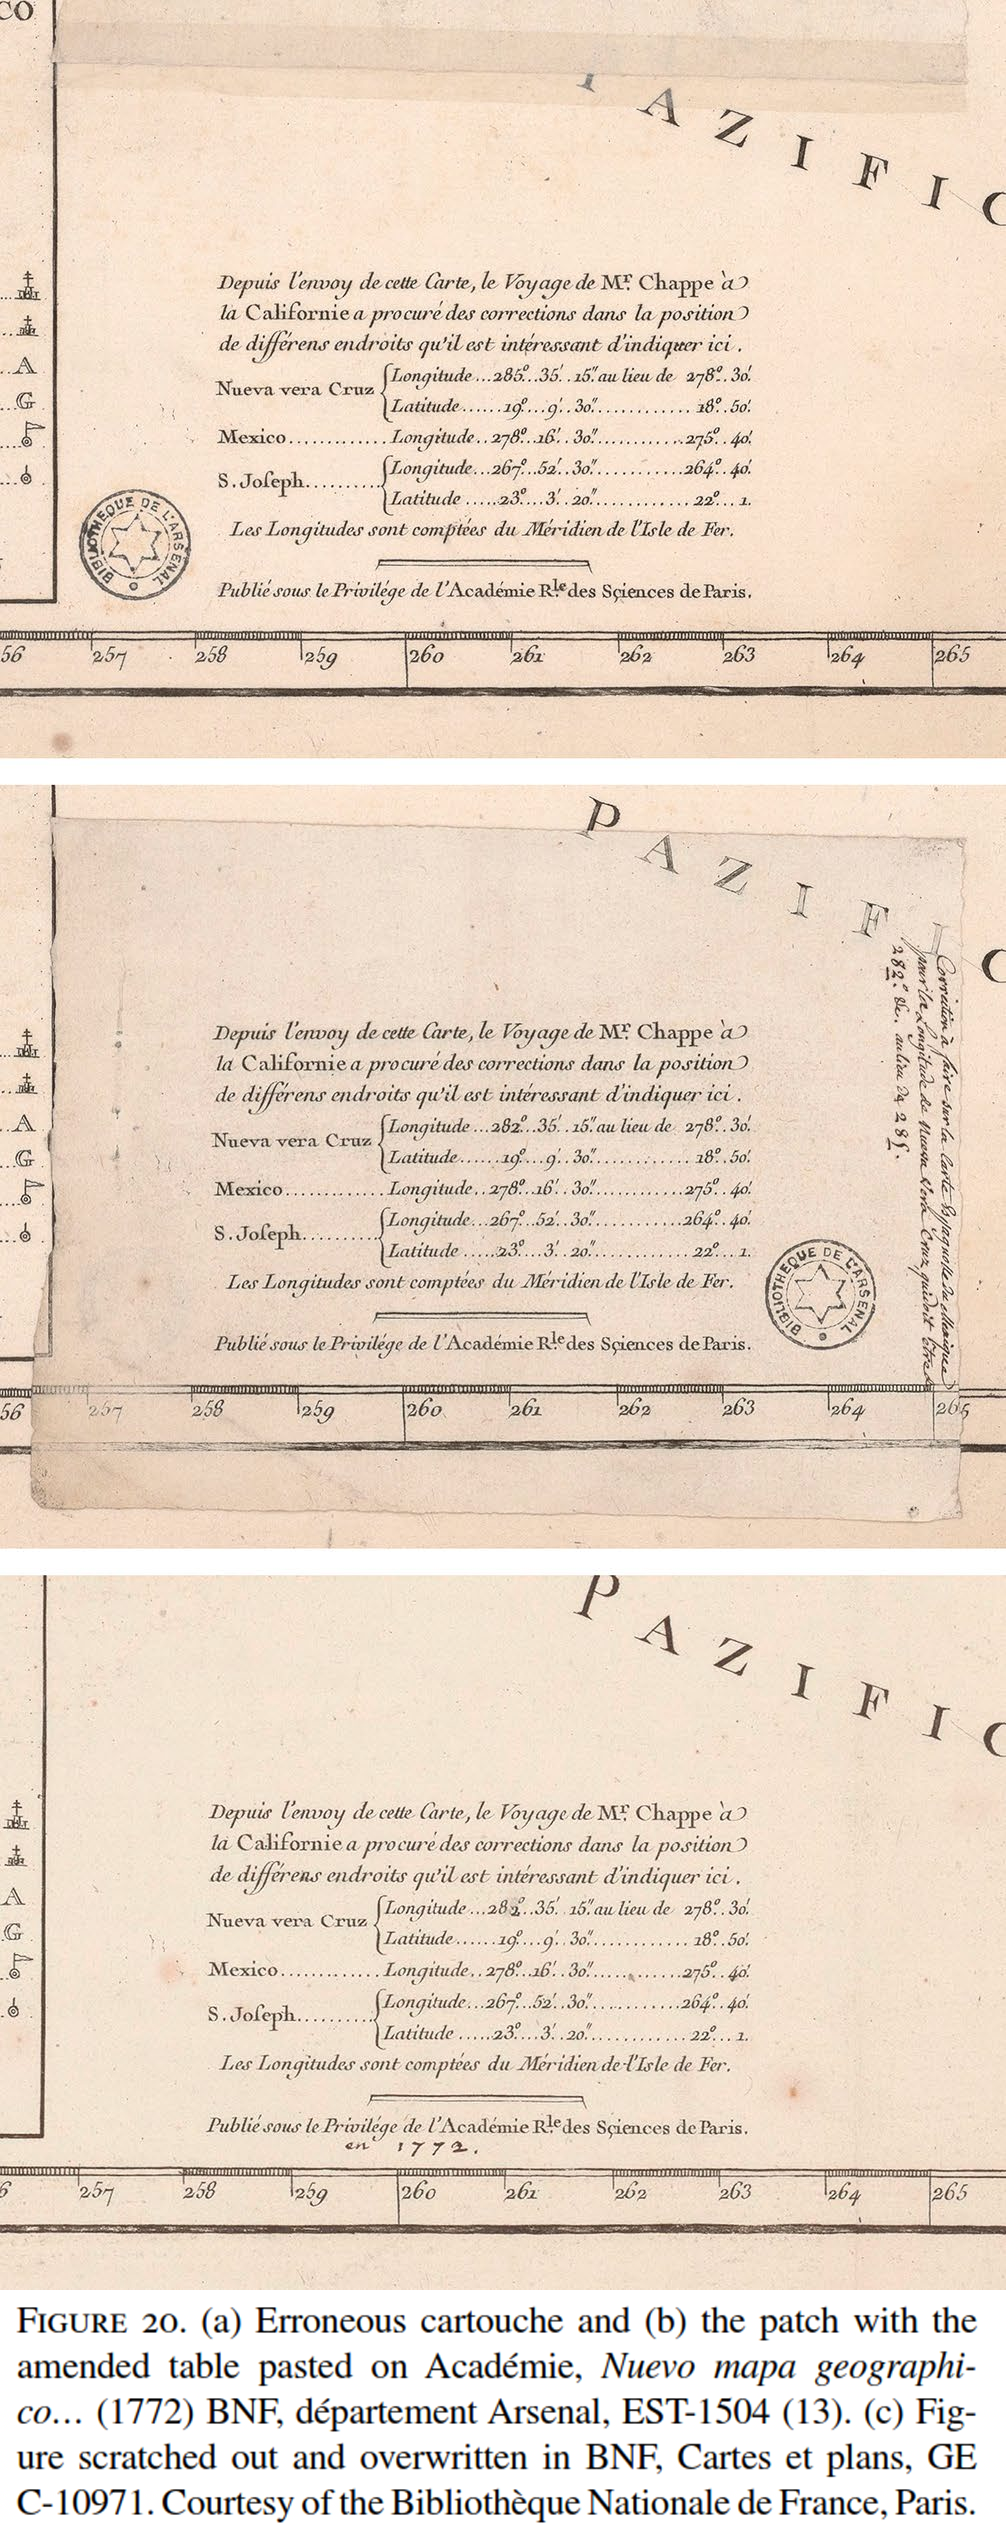 CO
P A Z I F I C
Depuis l'envoy de cette Carte, le Voyage de Mr. Chappe à
la Californie a procuré des corrections dans la position
de différens endroits qu'il est intéressant d'indiquer ici.
Nueva vera Cruz { Longitude...285°..35'..15" au lieu de 278°.30'.
Latitude......19°...9'..30"............18°.50'.
Mexico............. Longitude..278°..16'..30"............275°..40'.
S. Joseph.......... { Longitude...267°..52'..30"............264°..40'.
Latitude .....23°...3'..20"............22°...1.
Les Longitudes sont comptées du Méridien de l'Isle de Fer.
Publié sous le Privilége de l'Académie Rle. des Sçiences de Paris.
A
G
BIBLIOTHEQUE DE L'ARSENAL
56 257 258 259 260 261 262 263 264 265
P A Z I F I C
Depuis l'envoy de cette Carte, le Voyage de Mr. Chappe à
la Californie a procuré des corrections dans la position
de différens endroits qu'il est intéressant d'indiquer ici.
Nueva vera Cruz { Longitude...282°..35'..15" au lieu de 278°.30'.
Latitude......19°...9'..30"............18°.50'.
Mexico............. Longitude..278°..16'..30"............275°..40'.
S. Joseph.......... { Longitude...267°..52'..30"............264°..40'.
Latitude .....23°...3'..20"............22°...1.
Les Longitudes sont comptées du Méridien de l'Isle de Fer.
Publié sous le Privilége de l'Académie Rle. des Sçiences de Paris.
A
G
BIBLIOTHEQUE DE L'ARSENAL
Correction à faire sur la Carte Espagnole du Mexique
pour la Longitude de Nueva Vera Cruz qui doit être
282.° &c. au lieu de 285.
56 257 258 259 260 261 262 263 264 265
P A Z I F I C
Depuis l'envoy de cette Carte, le Voyage de Mr. Chappe à
la Californie a procuré des corrections dans la position
de différens endroits qu'il est intéressant d'indiquer ici.
Nueva vera Cruz { Longitude...282°..35'..15" au lieu de 278°.30'.
Latitude......19°...9'..30"............18°.50'.
Mexico............. Longitude..278°..16'..30"............275°..40'.
S. Joseph.......... { Longitude...267°..52'..30"............264°..40'.
Latitude .....23°...3'..20"............22°...1.
Les Longitudes sont comptées du Méridien de l'Isle de Fer.
Publié sous le Privilége de l'Académie Rle. des Sçiences de Paris.
en 1772.
A
G
6 257 258 259 260 261 262 263 264 265
FIGURE 20. (a) Erroneous cartouche and (b) the patch with the
amended table pasted on Académie, Nuevo mapa geographi-
co... (1772) BNF, département Arsenal, EST-1504 (13). (c) Fig-
ure scratched out and overwritten in BNF, Cartes et plans, GE
C-10971. Courtesy of the Bibliothèque Nationale de France, Paris.